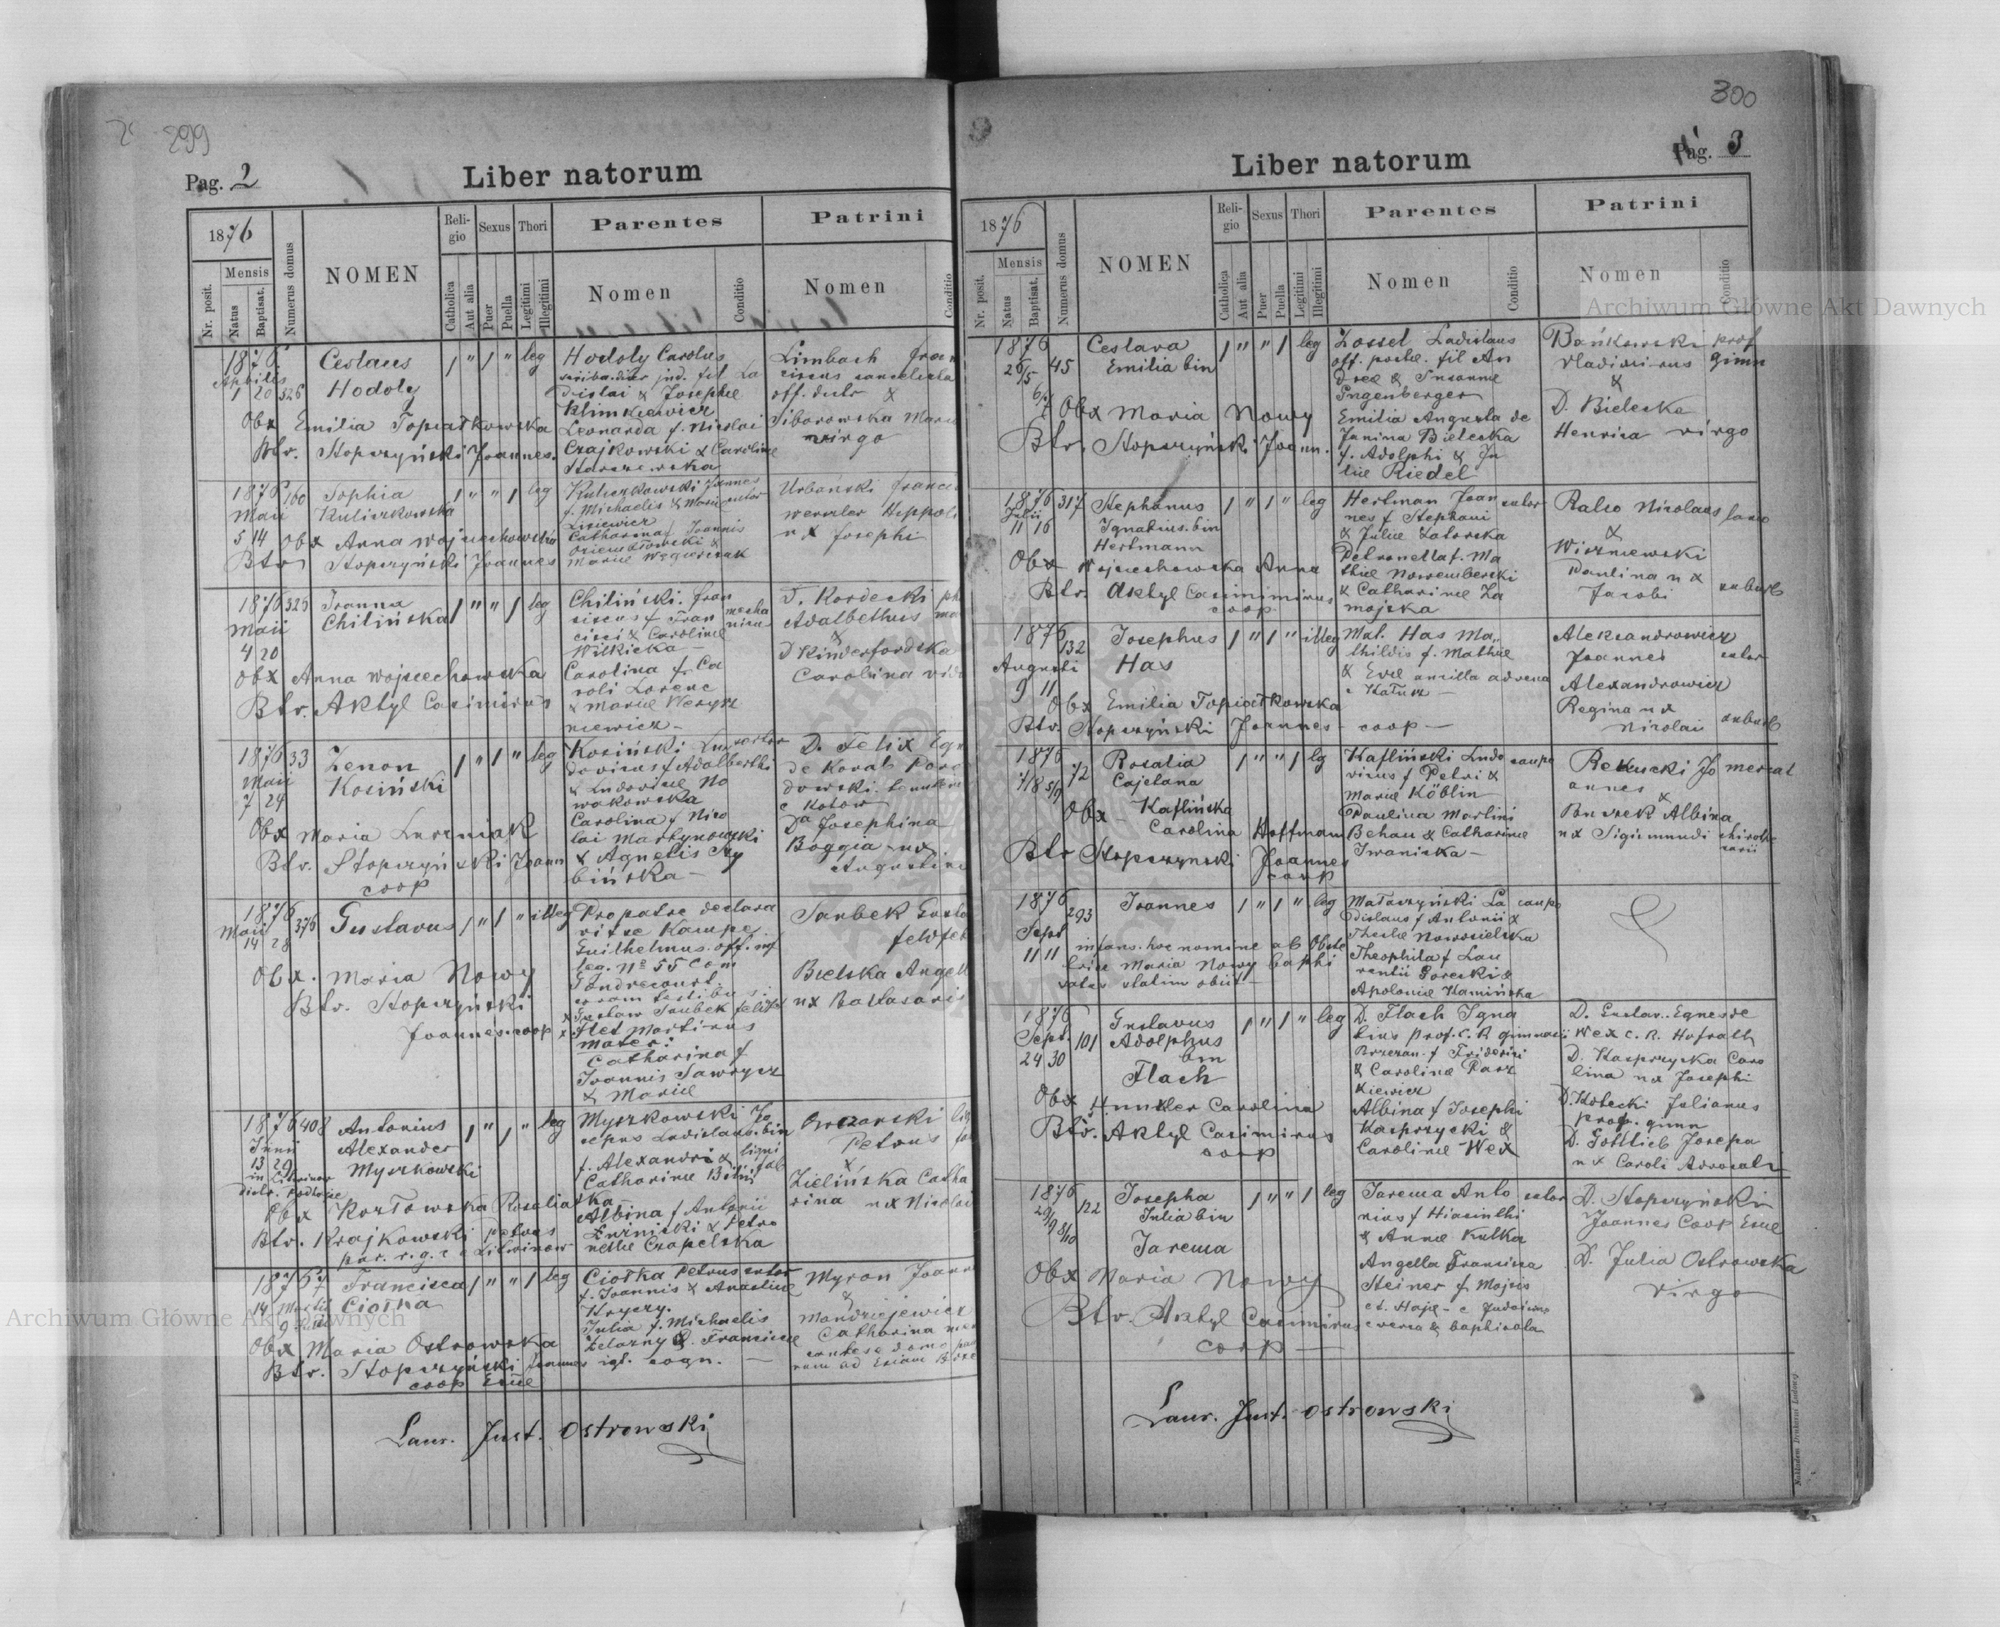 299
Pag. 2
Liber natorum
1876
Nr. posit.
Mensis
Natus
Baptisat.
Numerus domus
NOMEN
Religio
Catholica
Aut alia
Sexus
Puer
Puella
Thori
Legitimi
Illegitimi
Parentes
Nomen
Conditio
Patrini
Nomen
Conditio
1876
Aprilis
1 20 326
Ceslaus
Hodoly
1 " 1 " leg
Hodoly Carolus
dislai & Josephae
Klimkiewicz
Leonarda f. Nicolai
Czajkowski & Carolinae
Limbach
off. dutr &
virgo
Obx Emilia Topiatkowska
Btr. Stopczyński Joannes.
1876 160
Maii
5 14
Sophia
Kuliczkowska
1 " " 1 leg
Kuliczkowski Joannes
f. Michaelis & Mariae
sutor
Catharina f. Joannis
Mariae
Urbański
ux Josephi
Obx Anna Wojciechowska
Btr Stopczyński Joannes
1876 325
Maii
4 20
Joanna
Chilińska
1 " " 1 leg
Chiliński Fran
ciscus f. Fran
cisci & Carolinae
Wilkicka
Carolina f. Ca
roli Lorenc
& Mariae Weryz
niewicz
D. Kordecki
Adalbethus
&
D Kinderfordska
Carolina
Obx Anna Wojciechowska
Btr. Aktyl Casimirus
1876 33
Maii
7 24
Zenon
Kosiński
1 " 1 " leg
Kosiński Lu
dovicus f Adalberthi
& Ludovicae No
wakowska
Carolina f. Nico
lai Martynowski
& Agnetis Szy
bińska
D. Felix
de Korab
dowski
c Kotow
Da Josephina
Boggia ux
Augustini
Obx Maria Luczniak
Btr. Stopczyński Joann
coop
1876
Maii 376
14 28
Gustavus
1 " 1 " illeg
Pro patre declara
vit se Kampe
Guilhelmus off. mf
leg. No 55 Com
Gondrecourt
coram testibus:
Gustaw Saubek
& Flet Martinus
mater:
Catharina f
Joannis Sawrycz
& Mariae
Saubek
Bielska Angel
ux Baltasaris
Obx. Maria Nowy
Btr. Stopczyński
Joannes coop
1876 408
Junii
13 29
Antonius
Alexander
Myszkowski
1 " 1 " leg
Myszkowski Jo
sephus Ladislaus bin
f. Alexandri &
Catharinae Bitni
ska
Albina f Antonii
Petro
nellae Czapelska
Petrus
&
Zielińska Catha
rina ux Nicolai
Obx Kozłowska Rosalia
Btr. Krajkowski Petrus
1876 7
14 Martii
Francisca
Ciołka
1 " " 1 leg
Ciołka Petrus sutor
f. Joannis & Anastasiae
Hryczy.
Julia f. Michaelis
Zelazny & Franciscae
igt. cogn.
Myron Joann
&
Mandziejewicz
Catharina
Obx Maria Ostrowska
Btr. Stopczyński Joannes
coop
Laur. Just. Ostrowski
300
Pag. 3
Liber natorum
1876
Nr. posit.
Mensis
Natus
Baptisat.
Numerus domus
NOMEN
Religio
Catholica
Aut alia
Sexus
Puer
Puella
Thori
Legitimi
Illegitimi
Parentes
Nomen
Conditio
Patrini
Nomen
Conditio
1876
26/5 45
Ceslava
Emilia bin
1 " " 1 leg
Zossel Ladislaus
off. postae. fil An
dreae & Susannae
Ingenberger
Emilia Augusta de
Janina Bielecka
f. Adolphi & Ju
liae Riedel
Bańkowski prof
Vladimirus gimn
&
D. Bielecka
Henrica virgo
Obx Maria Nowy
Btr. Stopczyński Joann.
1876 317
Julii
11 16
Stephanus
Ignatius bin
Hertmann
1 " 1 " leg
Hertman Joan
nes f Stephani
& Juliae Zatorska
Petronella f. Ma
thiae Nowemberski
& Catharinae Za
mojska
Ralco Nicolaus
&
Wiszniewski
Paulina ux
Jacobi
suburb
Obx Wojciechowska Anna
Btr. Aktyl Casimirus
coop
1876
Augusti 132
9 11
Josephus
Has
1 " 1 " illeg
Mat. Has Ma
thildis f. Mathiae
& Evae ancilla advena
e Kałusz
Alexandrowicz
Joannes sutor
Alexandrowicz
Regina ux
Nicolai suburb
Obx Emilia Topiatkowska
Btr. Stopczyński Joannes - coop -
1876
7/8 5/9 72
Rosalia
Cajetana
Kaflińska
1 " " 1 lg
Kafliński Ludo
vicus f Petri &
Mariae Köblin
Paulina Martini
Behau & Catharinae
Iwanicka
caupo
Rekucki Jo mercat
annes
&
Albina
ux Sigismundi
Obx - Carolina Hoffmann
Btr Stopczynski Joannes
coop
1876
Sept 293
11 11
Joannes
1 " 1 " leg
Matarzyński La caupo
dislaus f Antonii &
Theclae Nowosielska
Theophila f Lau
rentii Gorecki &
Apoloniae Kamińska
infans hoc nomine ab Obste
trice Maria Nowy bapti
satus statim obiit
1876
Sept. 101
24 30
Gustavus
Adolphus
bin
Flach
1 " 1 " leg
D. Flach Igna
tius prof. C. R gimnasii
Brzezan. f Friderici
& Carolinae Parz
kiewicz
Albina f Josephi
Kasprzycki &
Carolinae Wex
D. Gustav. Egnes de
Wex C. R. Hofrath
D. Kasprzycka Caro
lina ux Josephi
D. Kotecki Julianus
prof. gimn
D. Gottlieb Josepa
ux Caroli Advocati
Obx Hunkler Carolina
Btr. Aktyl Casimirus
coop
1876
29/9 8/10 122
Josepha
Julia bin
Jarema
1 " " 1 leg
Jarema Anto sutor
nius f Hiacinthi
& Annae Kulka
Angella Francisca
Steiner f Mojsis
et. Haje - e Judaismo
conversa & baptisata
D. Stopczyński
Joannes Coop
D. Julia Ostrowska
virgo
Obx Maria Nowy
Btr. Aktyl Casimirus
coop
Laur. Just. Ostrowski
Archiwum Główne Akt Dawnych
Archiwum Główne Akt Dawnych